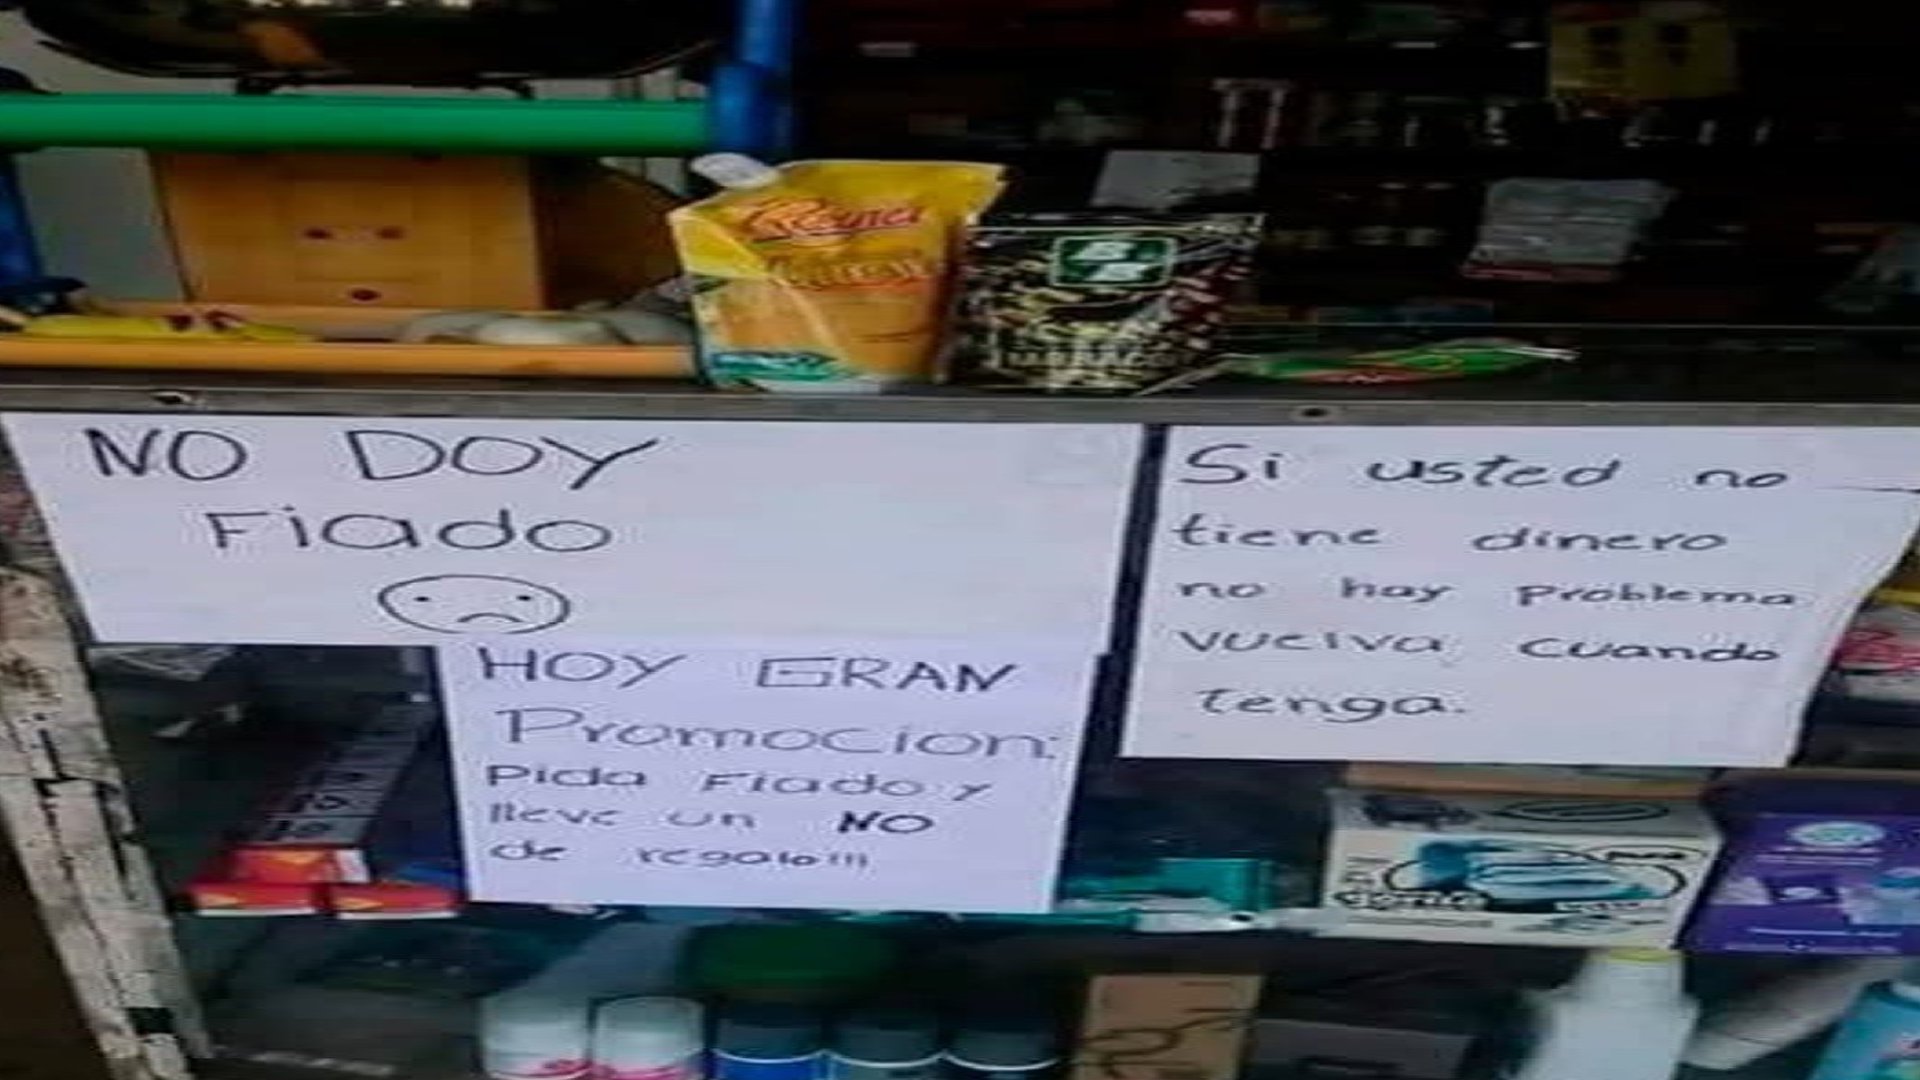 NO DOY
Fiado
HOY GRAN
Promocion:
Pida Fiado y
lleve un NO
de regalo!!!
Si usted no
tiene dinero
no hay problema
vuelva cuando
tenga.